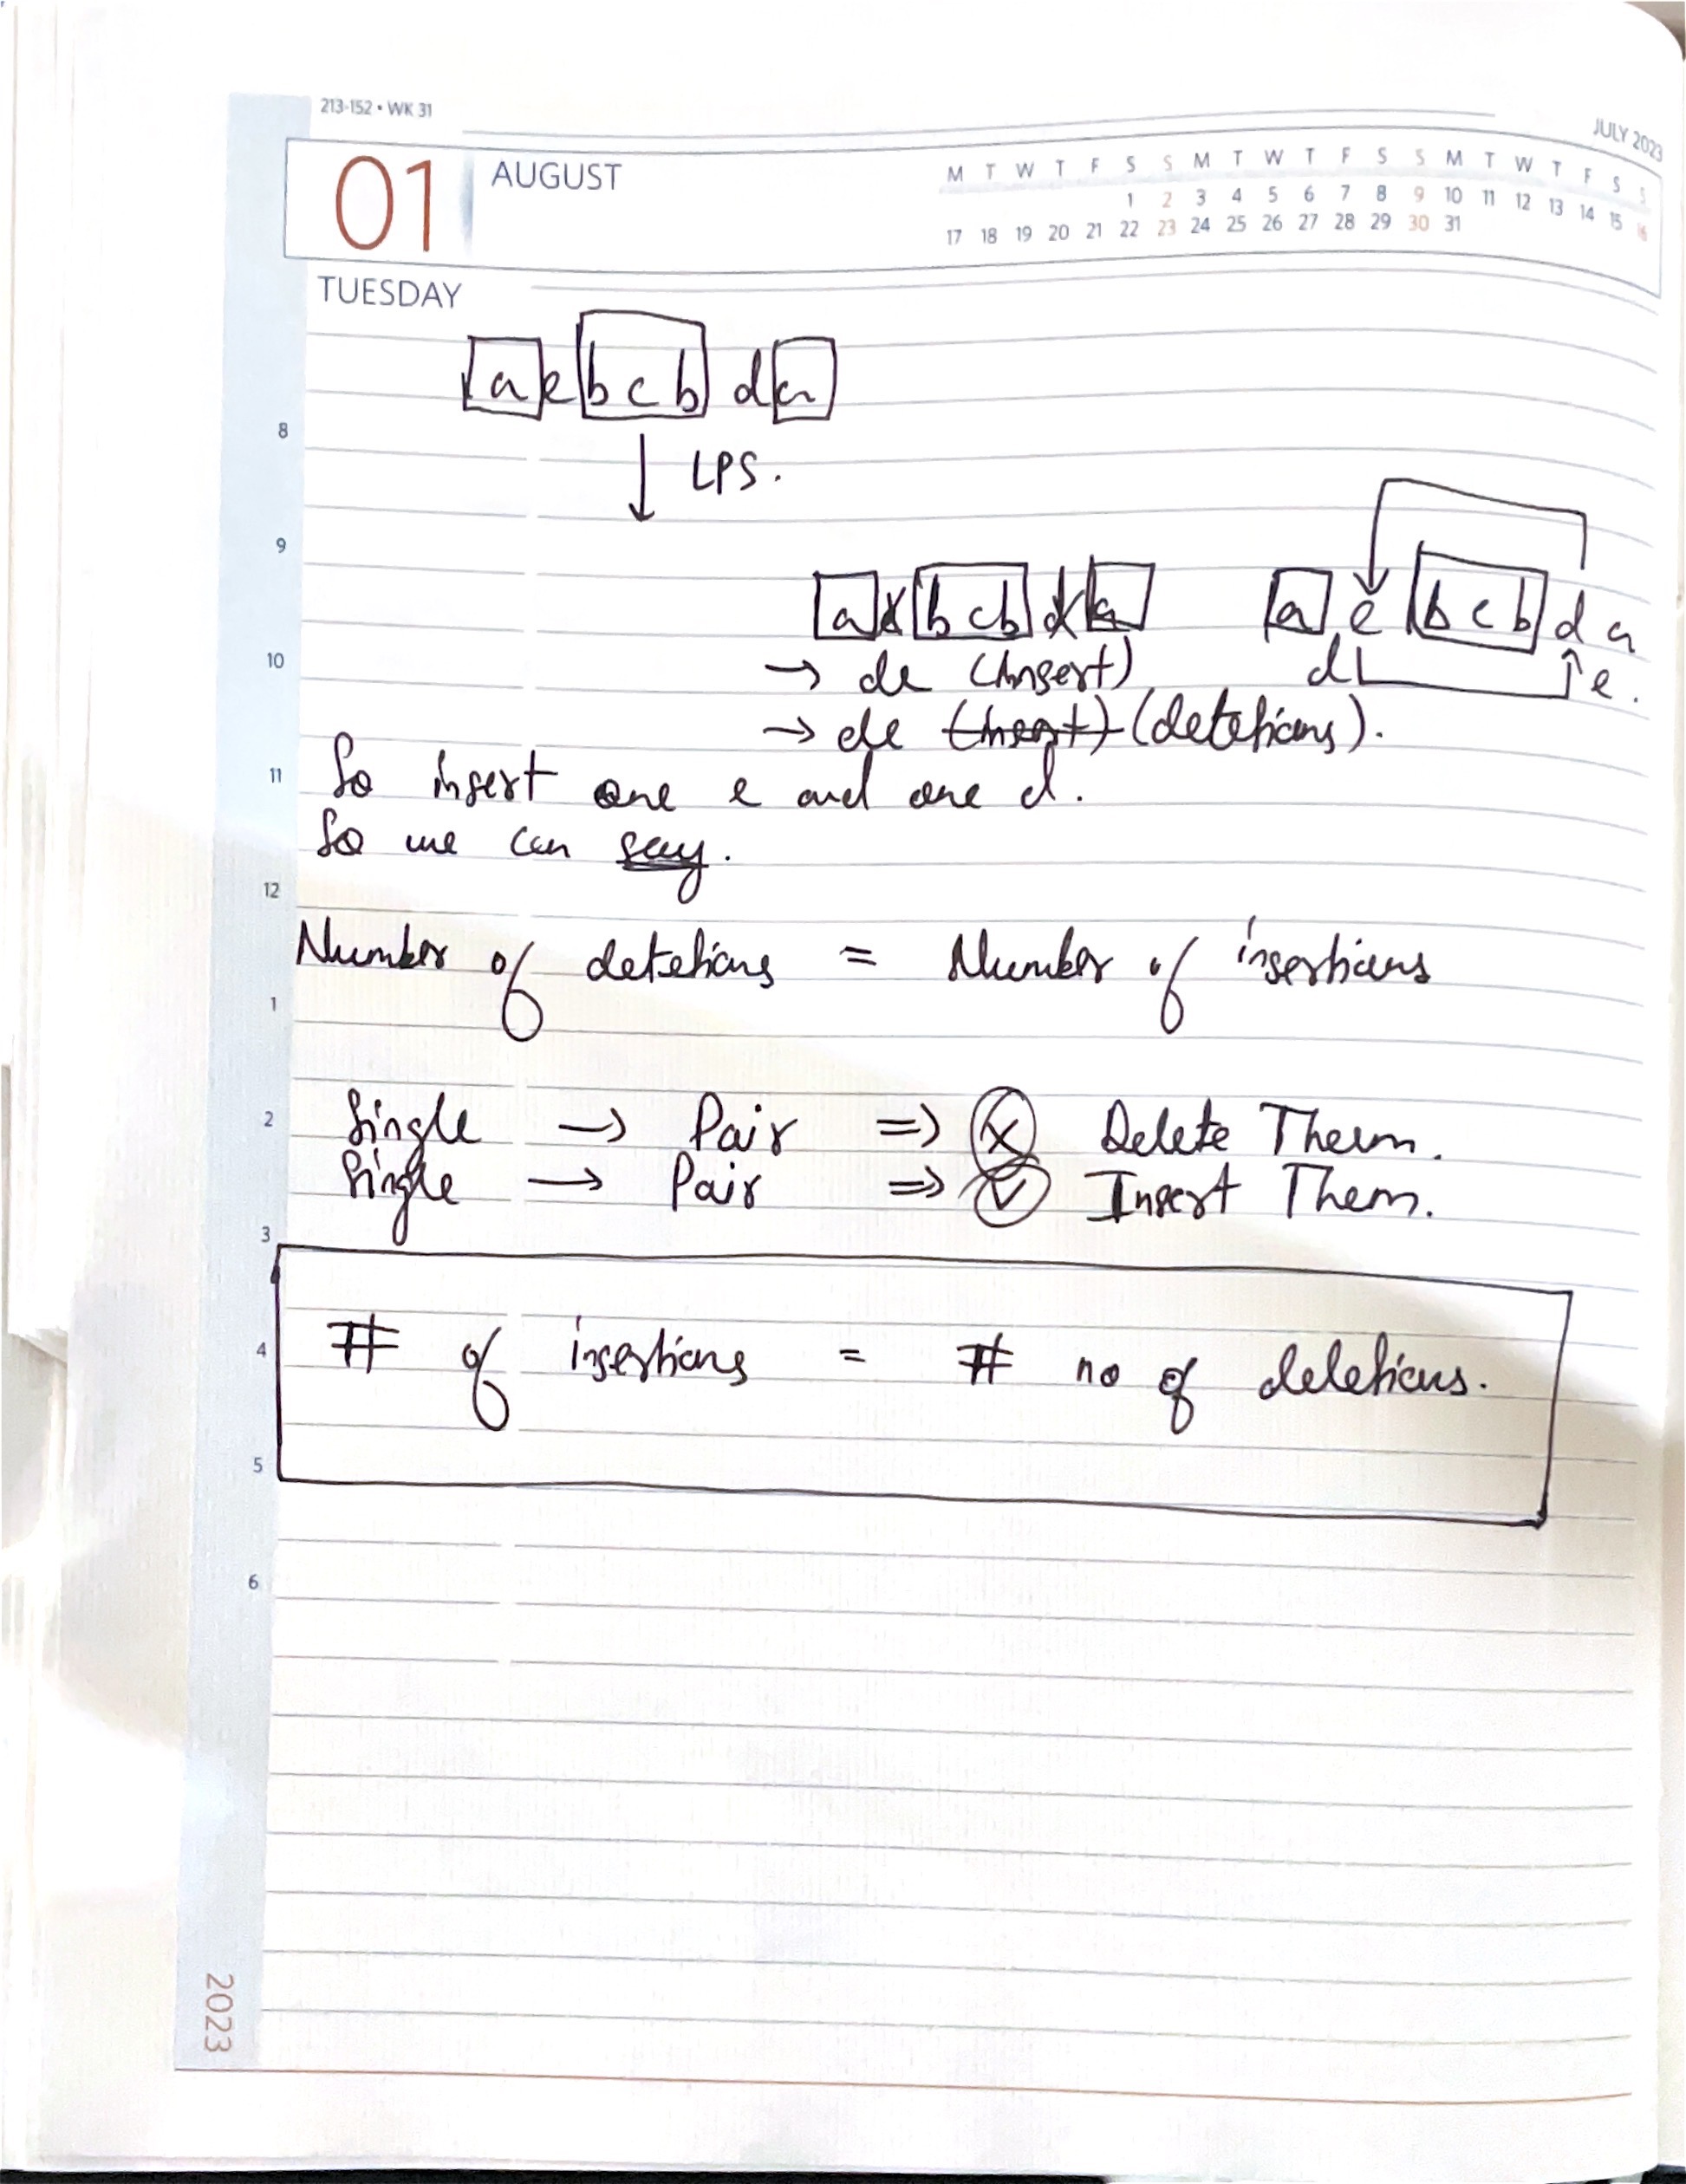 213-152 • WK 31
JULY 2023
01 AUGUST
M T W T F S S M T W T F S S M T W T F S S
1 2 3 4 5 6 7 8 9 10 11 12 13 14 15 16
17 18 19 20 21 22 23 24 25 26 27 28 29 30 31
TUESDAY
a e b c b d a
8
↓ LPS.
9
a e b c b d a a e b c b d a
10
→ de (Insert) d e.
→ de (Insert) (deletions).
11
So insert one e and one d.
So we can say.
12
Number of deletions = Number of insertions
1
2
Single → Pair ⇒ X Delete Them.
Single → Pair ⇒ ✓ Insert Them.
3
4
# of insertions = # no of deletions.
5
6
2023